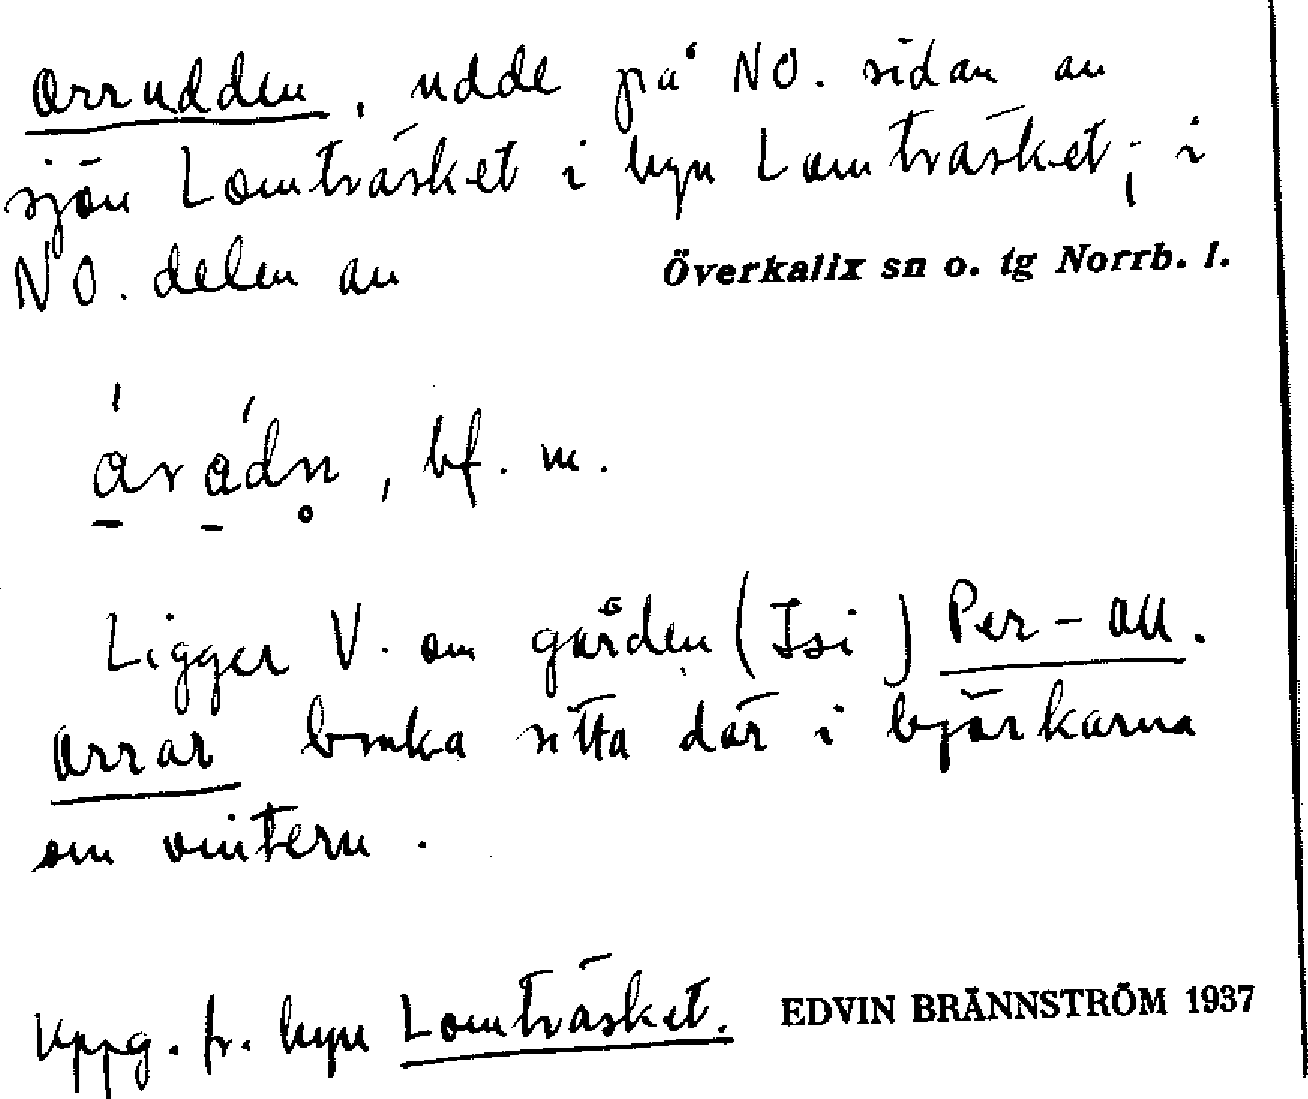 Orrudden, udde på NO. sidan av
sjön Lomträsket i byn Lomträsket; i
NO. delen av Överkalix sn o. tg Norrb. l.
árádn̥, bf. m.
Ligger V. om gården (Isi) Per-Oll.
Orrar bruka sitta där i björkarna
om vintern.
Uppg. fr. byn Lomträsket. EDVIN BRÄNNSTRÖM 1937